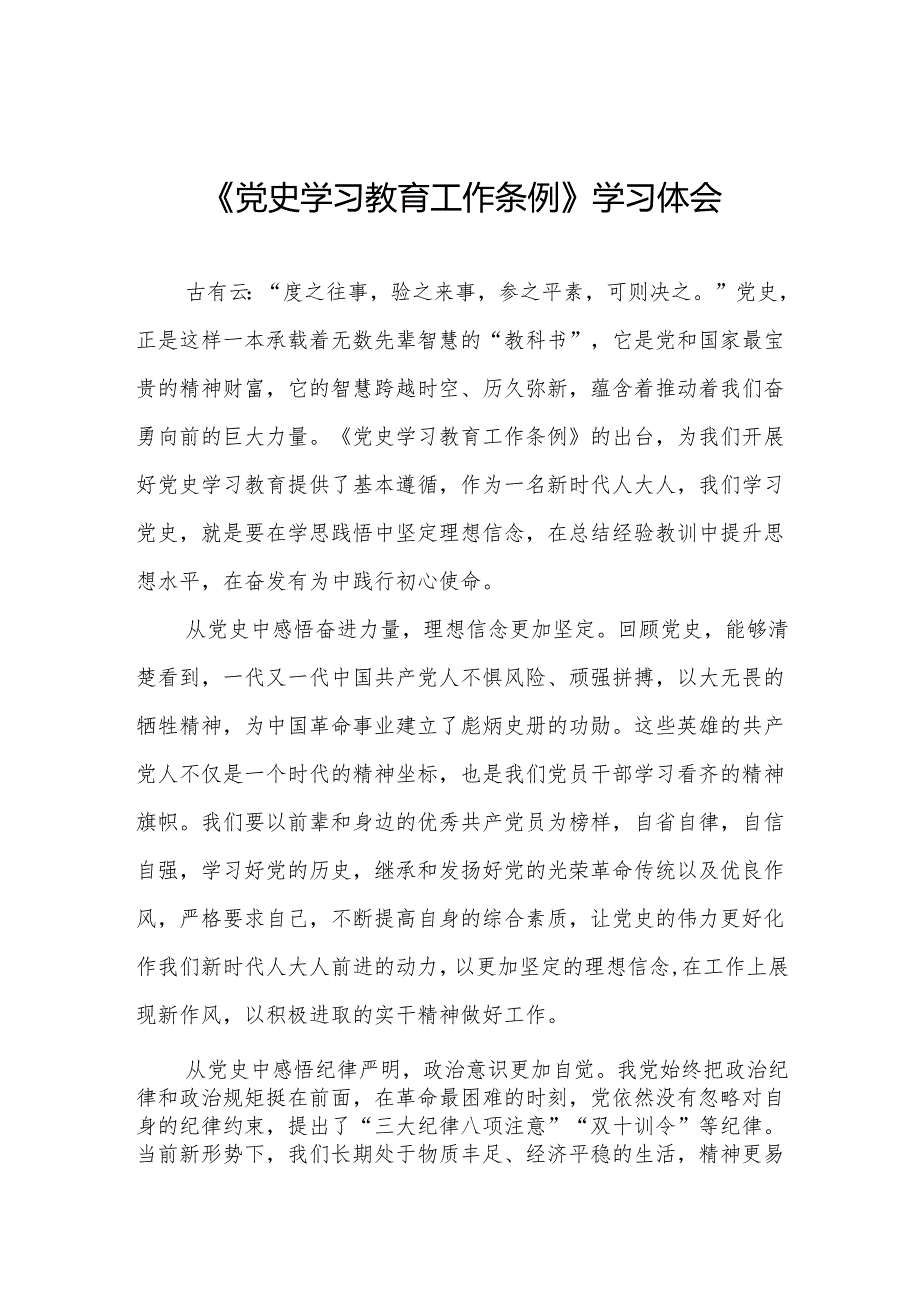 《党史学习教育工作条例》学习体会
古有云：“度之往事，验之来事，参之平素，可则决之。”党史，
正是这样一本承载着无数先辈智慧的“教科书”，它是党和国家最宝
贵的精神财富，它的智慧跨越时空、历久弥新，蕴含着推动着我们奋
勇向前的巨大力量。《党史学习教育工作条例》的出台，为我们开展
好党史学习教育提供了基本遵循，作为一名新时代人大人，我们学习
党史，就是要在学思践悟中坚定理想信念，在总结经验教训中提升思
想水平，在奋发有为中践行初心使命。
从党史中感悟奋进力量，理想信念更加坚定。回顾党史，能够清
楚看到，一代又一代中国共产党人不惧风险、顽强拼搏，以大无畏的
牺牲精神，为中国革命事业建立了彪炳史册的功勋。这些英雄的共产
党人不仅是一个时代的精神坐标，也是我们党员干部学习看齐的精神
旗帜。我们要以前辈和身边的优秀共产党员为榜样，自省自律，自信
自强，学习好党的历史，继承和发扬好党的光荣革命传统以及优良作
风，严格要求自己，不断提高自身的综合素质，让党史的伟力更好化
作我们新时代人大人前进的动力，以更加坚定的理想信念,在工作上展
现新作风，以积极进取的实干精神做好工作。
从党史中感悟纪律严明，政治意识更加自觉。我党始终把政治纪
律和政治规矩挺在前面，在革命最困难的时刻，党依然没有忽略对自
身的纪律约束，提出了“三大纪律八项注意”“双十训令”等纪律。
当前新形势下，我们长期处于物质丰足、经济平稳的生活，精神更易